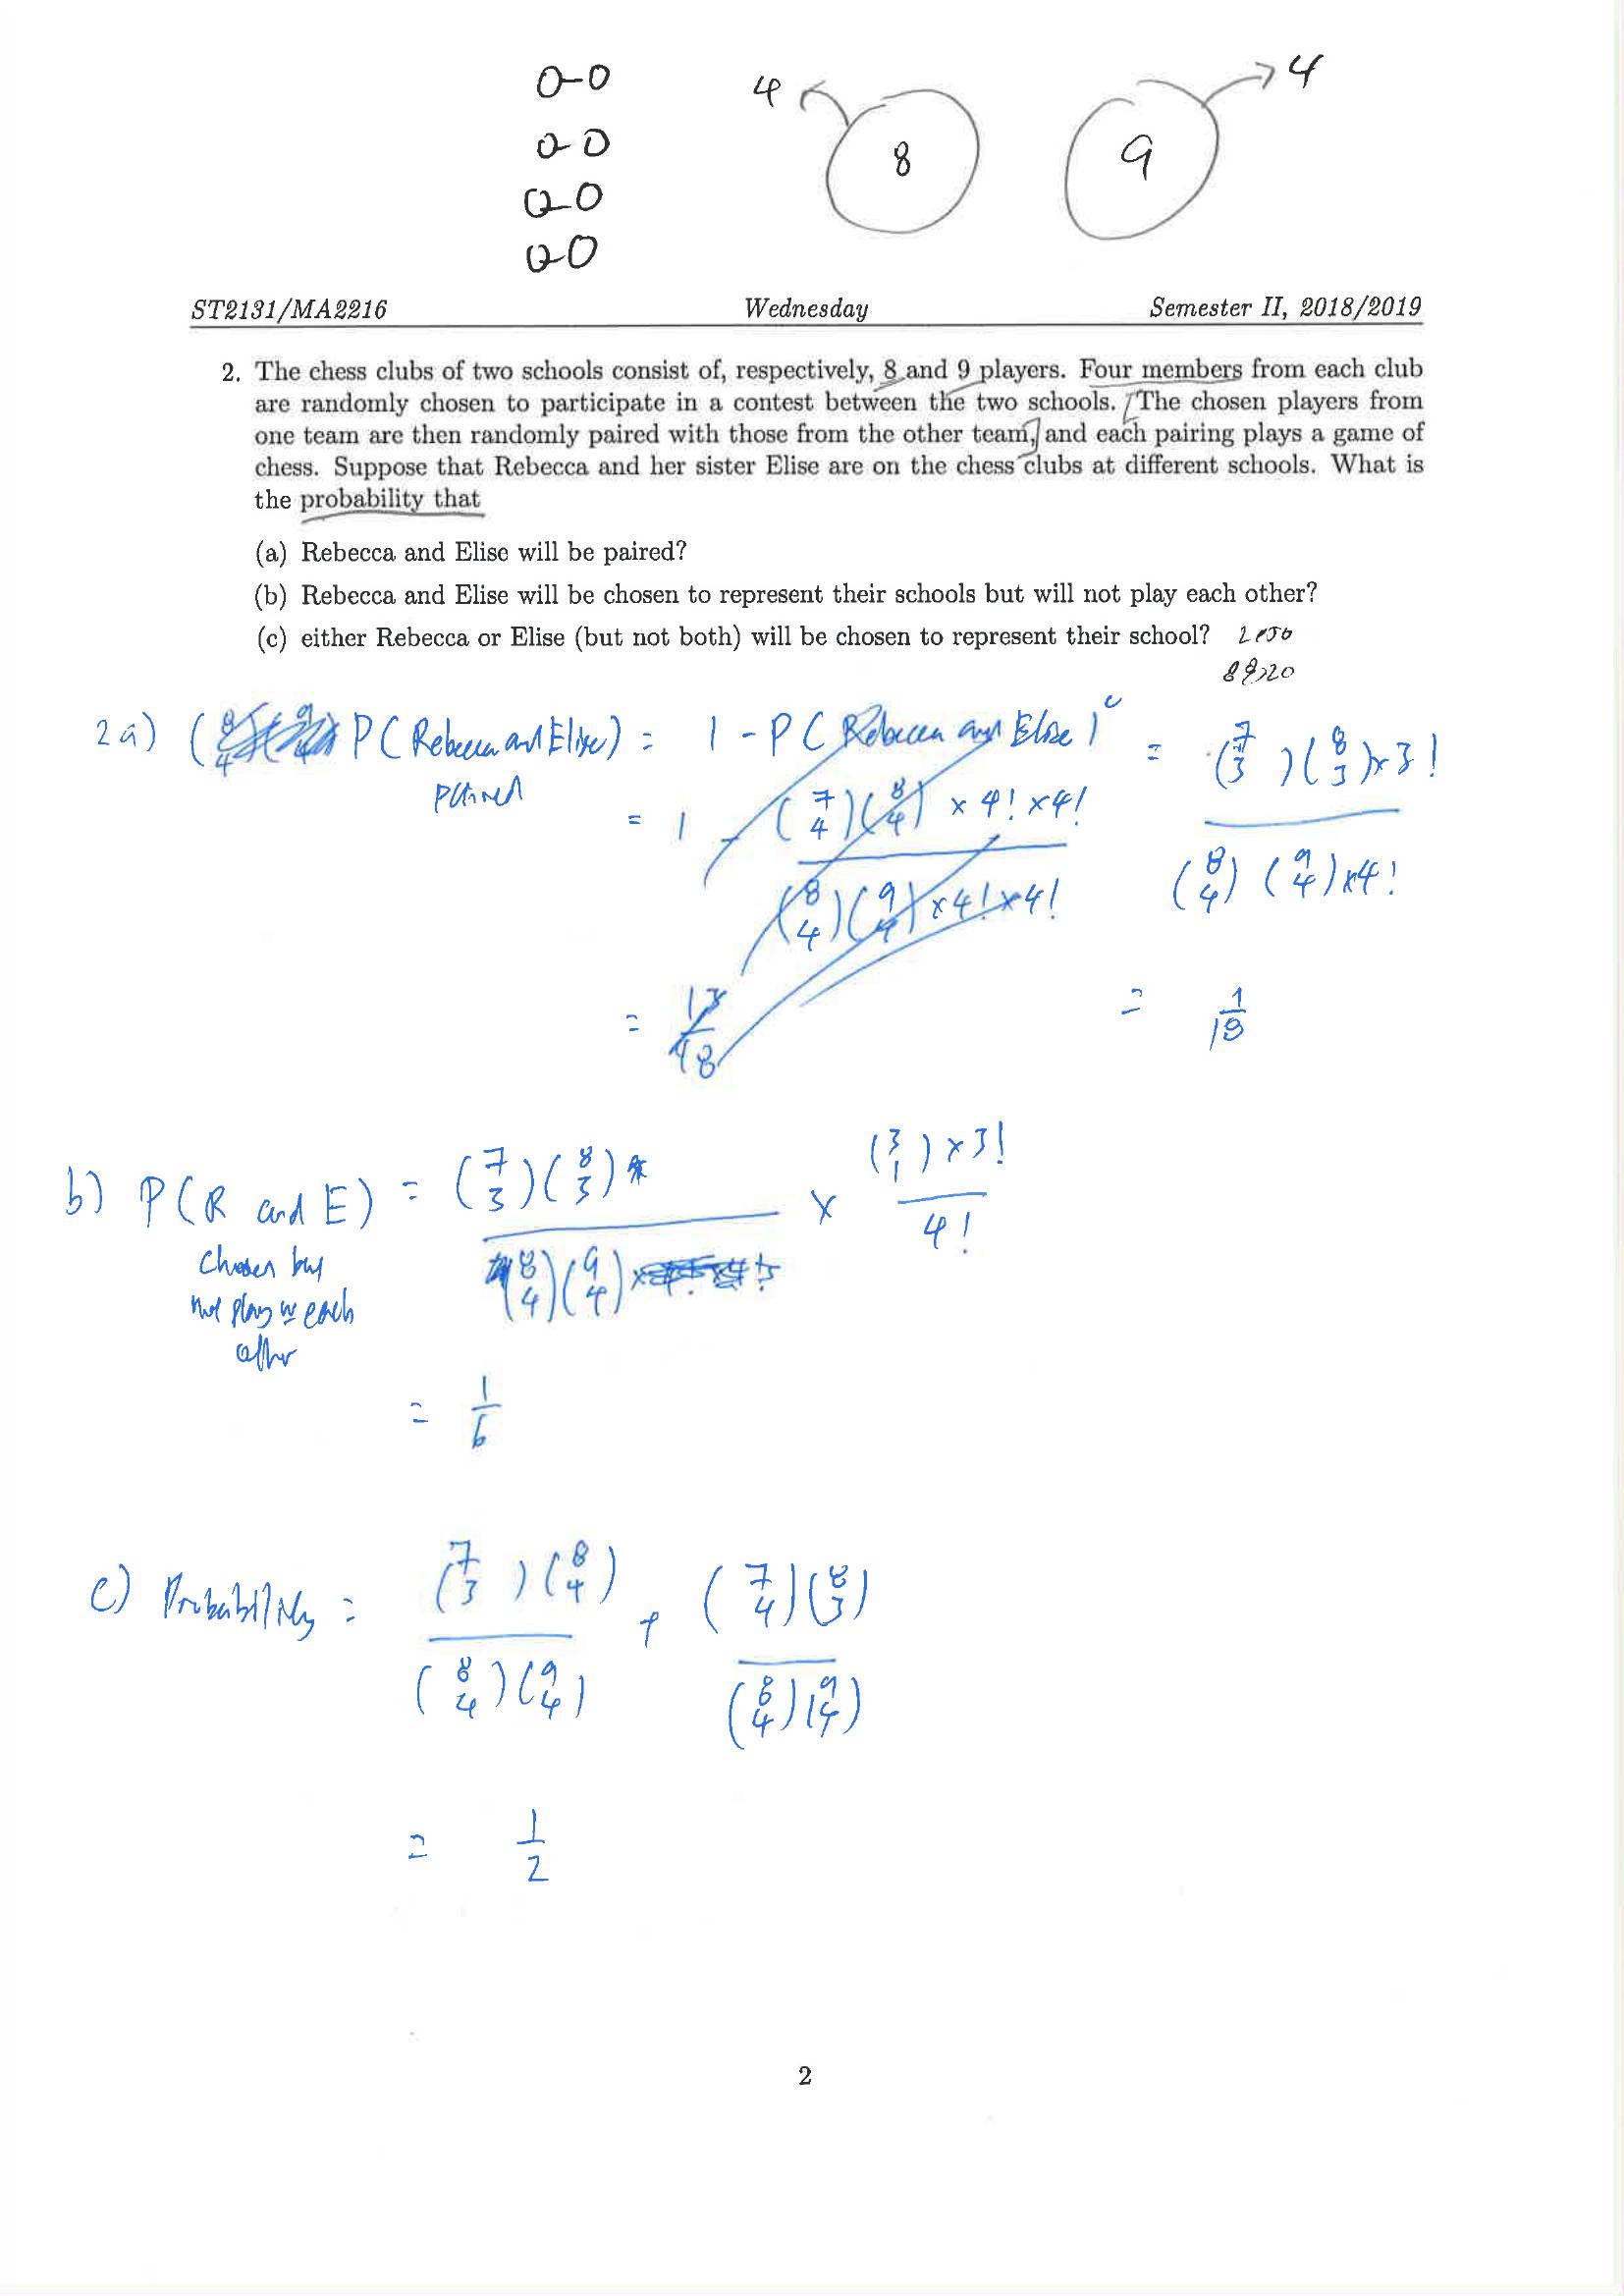 0-0
0-0
0-0
0-0
4 8 9 4
ST2131/MA2216 Wednesday Semester II, 2018/2019
2. The chess clubs of two schools consist of, respectively, 8 and 9 players. Four members from each club
are randomly chosen to participate in a contest between the two schools. [The chosen players from
one team are then randomly paired with those from the other team,] and each pairing plays a game of
chess. Suppose that Rebecca and her sister Elise are on the chess clubs at different schools. What is
the probability that
(a) Rebecca and Elise will be paired?
(b) Rebecca and Elise will be chosen to represent their schools but will not play each other?
(c) either Rebecca or Elise (but not both) will be chosen to represent their school?
2a) P(Rebecca and Elise) = 1 - P(Rebecca and Elise)^c = (7 3)(8 3)×3!
paired
= 1 - (7 4)(8 4) × 4! × 4!
(8 4)(9 4) × 4! × 4! (8 4)(9 4)×4!
= 18 = 1/18
b) P(R and E) = (7 3)(8 3) × (3 1) × 3!
(8 4)(9 4) 4!
chosen but
not play w each
other
= 1/6
c) Probability = (7 3)(8 4) + (7 4)(8 3)
(8 4)(9 4) (8 4)(9 4)
= 1/2
2